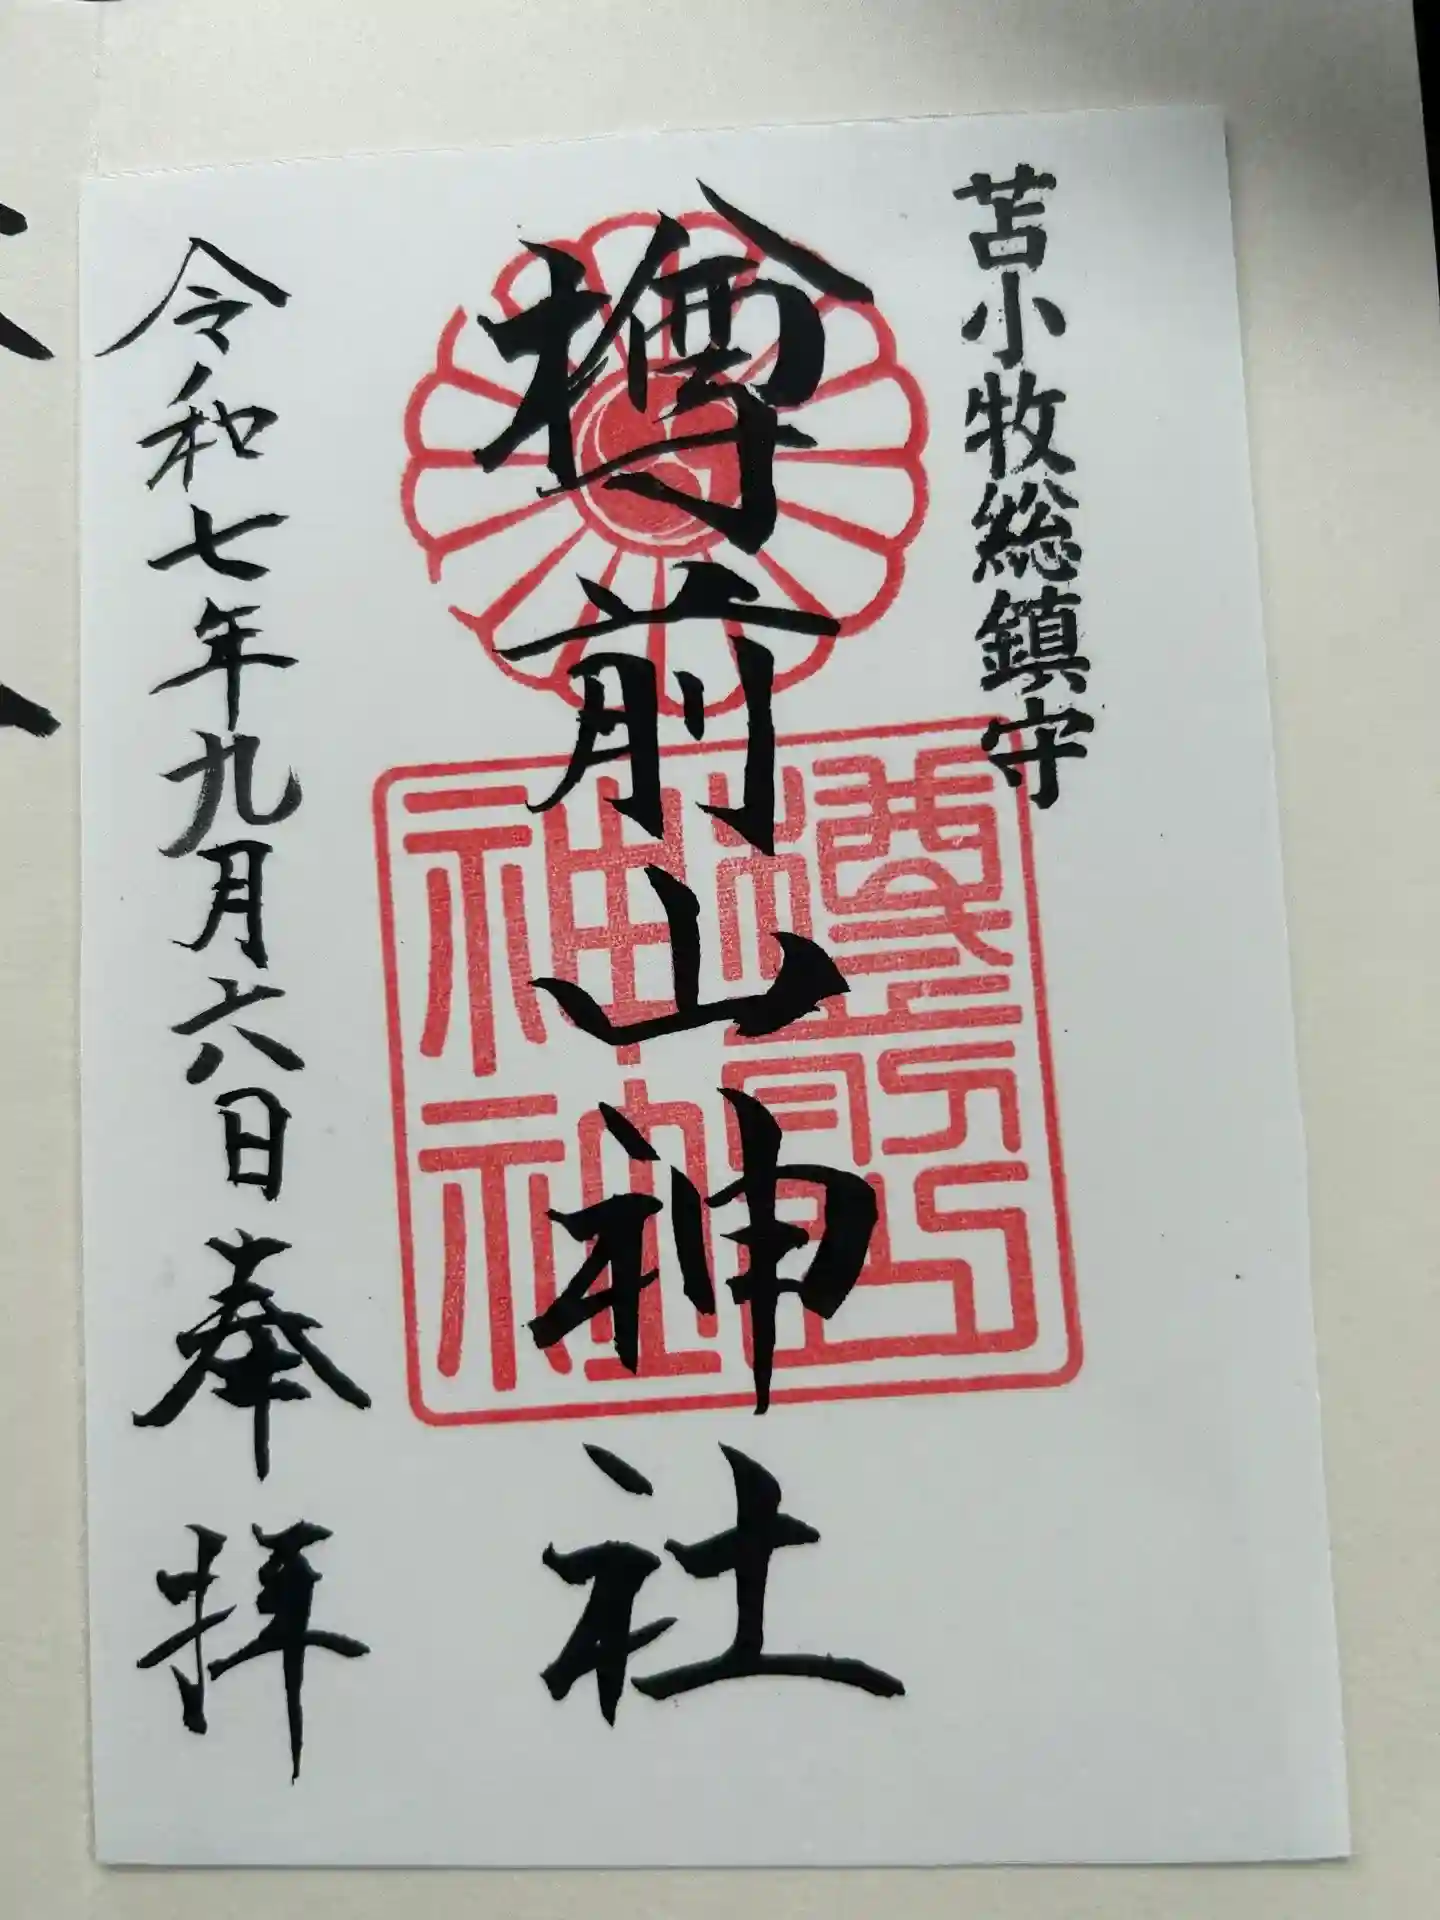 苫小牧総鎮守
樽前山神社
樽前山神社
令和七年九月六日奉拝